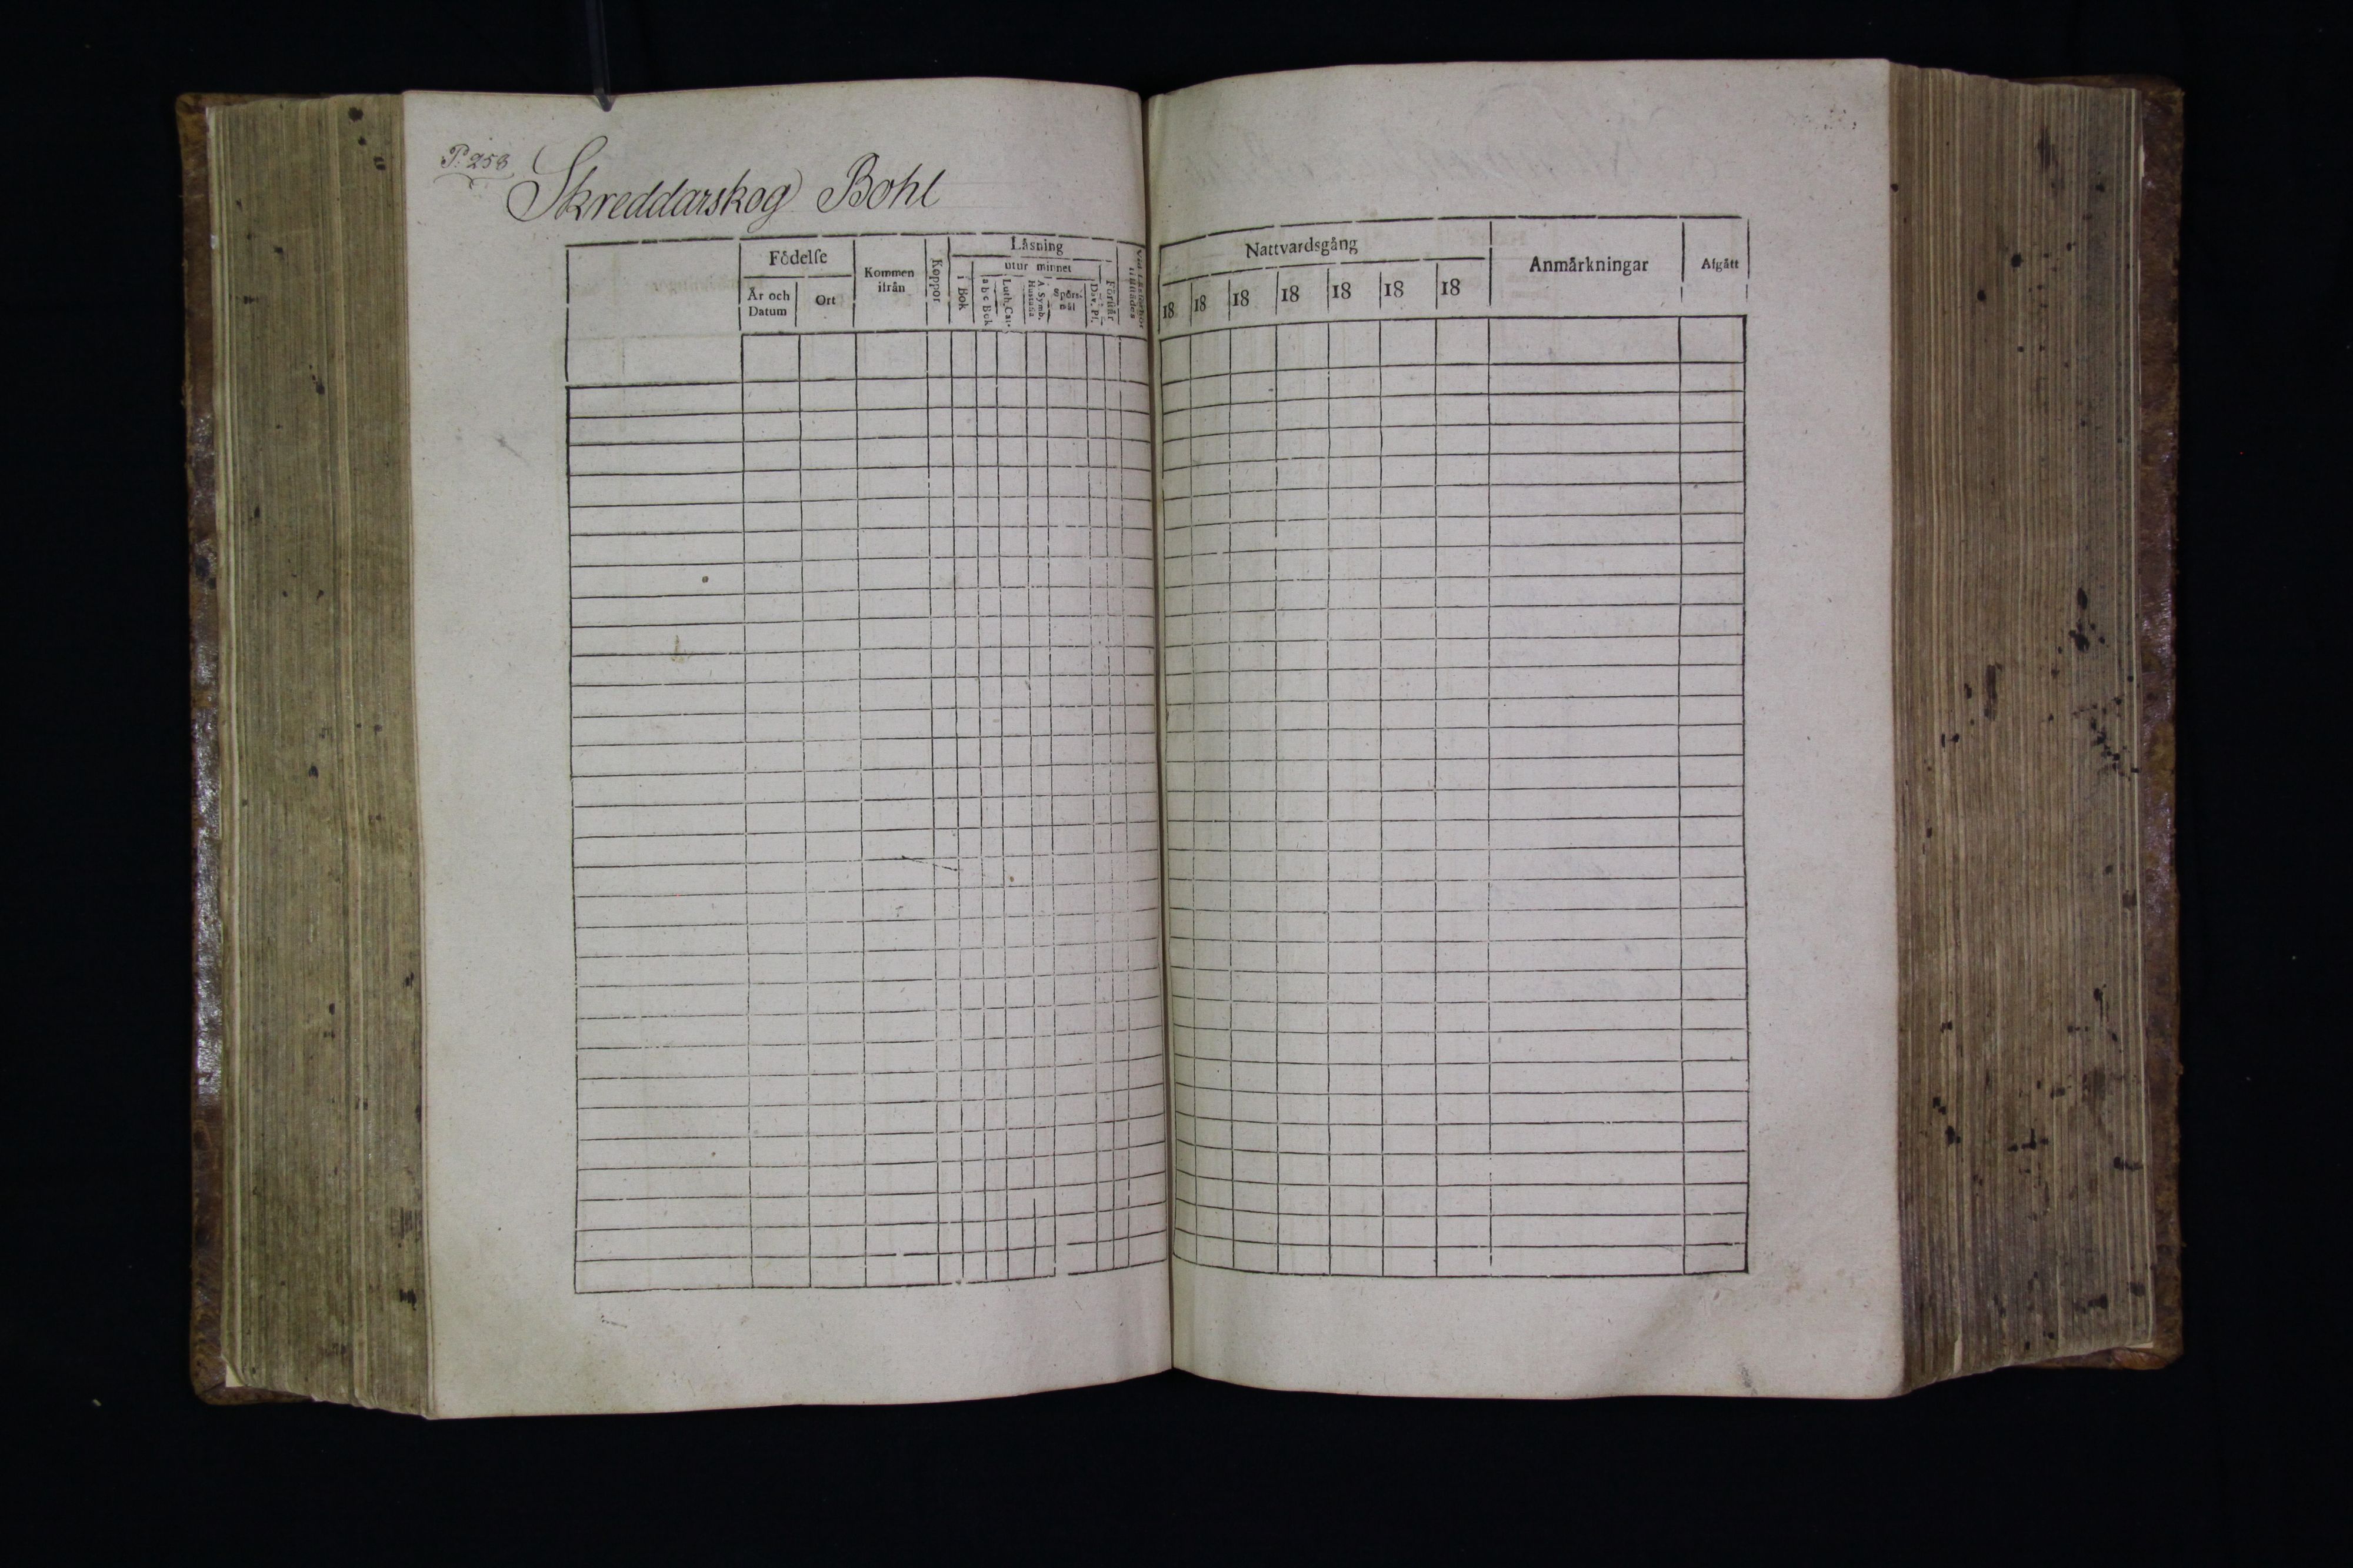 P. 258
Skreddarskog Bohl
Födelse
År och Datum
Ort
Kommen ifrån
Koppor
Läsning
i Bok
utur minnet
abc Bok
Luth. Cat.
A. Symb. Hustafla
Spörsmål
Dav. Ps.
Förstår
Nattvardsgång
18 18 18 18 18 18 18
Anmärkningar
Afgått